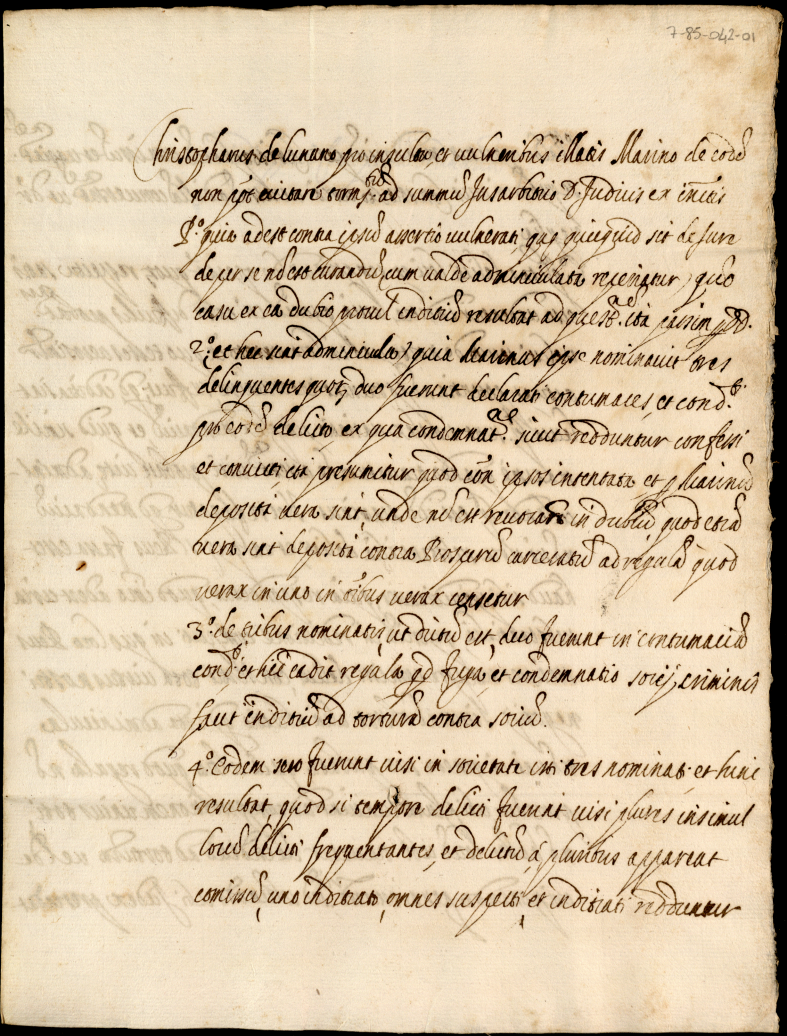 7-85-042-01
Christopharus de lunano pro insultu, et vulneribus illatis Marino de eod.
non pot evitare torm.ta ad summū Jusarbitrio D. Judicis ex infris
P.o quia adest contra ipsū assertio vulnerati, quę quicquid sit de Jure
de per se nō est curandū (cum valde adminiculata reperiatur) quo
casu ex ea dubio procul inditiū resultat ad quest.ne ita passim
2.o et hec sint adminicula) quia Marinus ipse nominavit tres
delinquentes quorᷣ duo fuerunt declarati contumaces, et cond.ti
pro eod delicto ex qua condemnat.ne sicut redduntur confessi
et convicti ita presumitur quod con ipsos intentata et ꝑ Marinū
deposita vera sint, unde nō est revocare in dubiū quod etiā
vera sint deposita contra Prosperū carceratū ad regulā quod
verax in uno in oībus verax censetur
3.o de tribus nominatis, ut dictū est, duo fuerunt in contumaciā
cond.ti et hic cadit regula qd fuga, et condemnatio socij criminis
facit inditiū ad torturā contra sociū.
4.o Eodem sero fuerunt visi in societate isti tres nominati et hinc
resultat, quod si tempore delicti fuerint visi plures insimul
locū delicti frequentantes, et delictū à pluribus appareat
comissū, uno inditiato, omnes suspecti et inditiati redduntur